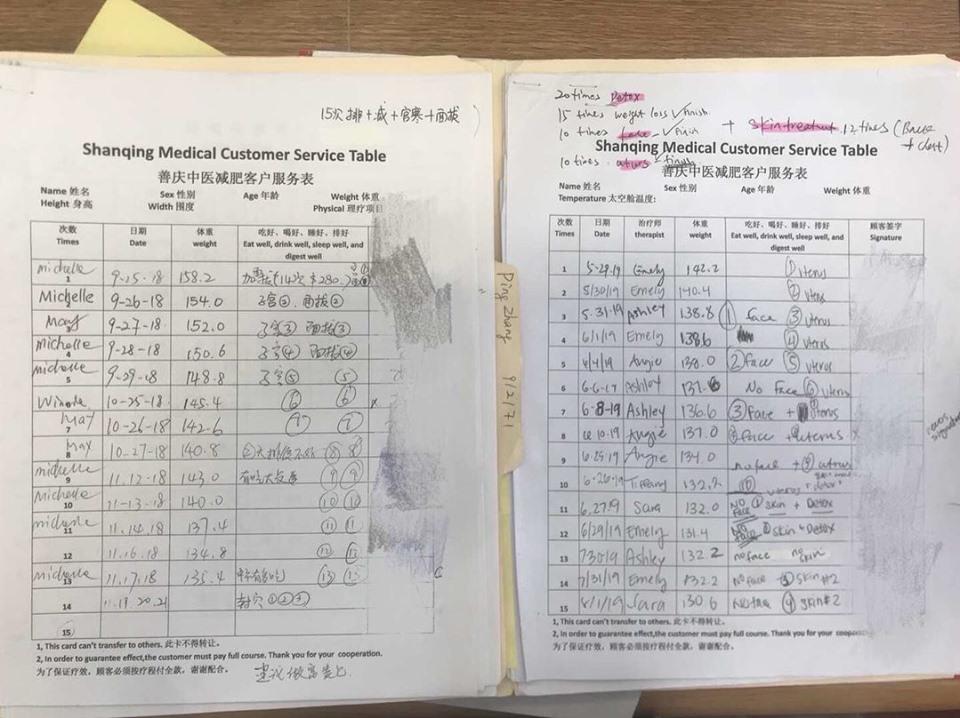 15次 排+减+宫寒+面拔
Shanqing Medical Customer Service Table
善庆中医减肥客户服务表
Name 姓名 Sex 性别 Age 年龄 Weight 体重
Height 身高 Width 围度 Physical 理疗项目
次数 日期 体重 吃好、喝好、睡好、排好
Times Date weight Eat well, drink well, sleep well, and
digest well
michelle 1 9-25-18 158.2
Michelle 9-26-18 154.0 子宫② 面拔②
May 9-27-18 152.0 子宫③ 面拔③
michelle 4 9-28-18 150.6 子宫④ 面拔④
michelle 5 9-29-18 148.8 子宫⑤ ⑤
10-25-18 145.4 ⑥ ⑥
May 10-26-18 142.6 ⑦ ⑦
May 8 10-27-18 140.8 ⑧ ⑧
michelle 9 11.12-18 143.0 ⑨ ⑨
Michelle 10 11-13-18 140.0 ⑩ ⑩
michelle 11 11.14.18 137.4 ⑪
12 11.16.18 134.8 ⑫
michelle 13 11.17.18 135.4 ⑬
14 11.19.20.21 封穴①②③
15
1, This card can't transfer to others. 此卡不得转让。
2, In order to guarantee effect,the customer must pay full course. Thank you for your cooperation.
为了保证疗效，顾客必须按疗程付全款，谢谢配合。
建议做
Ping Zhang 9/2/71
20 times Detox
15 times weight loss ✓finish
10 times face ✓finish + skin treatment 12 times (Back + chest)
10 times uterus ✓finish
Shanqing Medical Customer Service Table
善庆中医减肥客户服务表
Name 姓名 Sex 性别 Age 年龄 Weight 体重
Temperature 太空舱温度:
次数 日期 治疗师 体重 吃好、喝好、睡好、排好 顾客签字
Times Date therapist weight Eat well, drink well, sleep well, and Signature
digest well
1 5-29-19 Emely 142.2 ① uterus
2 5/30/19 Emely 140.4 ② uterus
3 5.31.19 Ashley 138.8 ① face ③ uterus
4 6/1/19 Emely 138.6 ④ uterus
5 6/4/19 Angie 138.0 ② face ⑤ uterus
6 6-6-19 Ashley No Face ⑥ uterus
7 6-8-19 Ashley 136.6 ③ face + uterus
8 6.10.19 Angie 137.0 face + uterus
9 6.25.19 Angie 134.0 no face + ⑨ uterus
10 6-26-19 Tiffany 132.2 ⑩ uterus + detox
11 6.27.19 Sara 132.0 NO Face ① skin + Detox
12 6/29/19 Emely 131.4 NO face skin + Detox
13 7.30.19 Ashley 132.2 no face no skin
14 7/31/19 Emely 132.2 No face ③ skin #2
15 8/1/19 Sara 130.6 No face ④ skin #2
1, This card can't transfer to others. 此卡不得转让。
2, In order to guarantee effect,the customer must pay full course. Thank you for your
为了保证疗效，顾客必须按疗程付全款，谢谢配合。